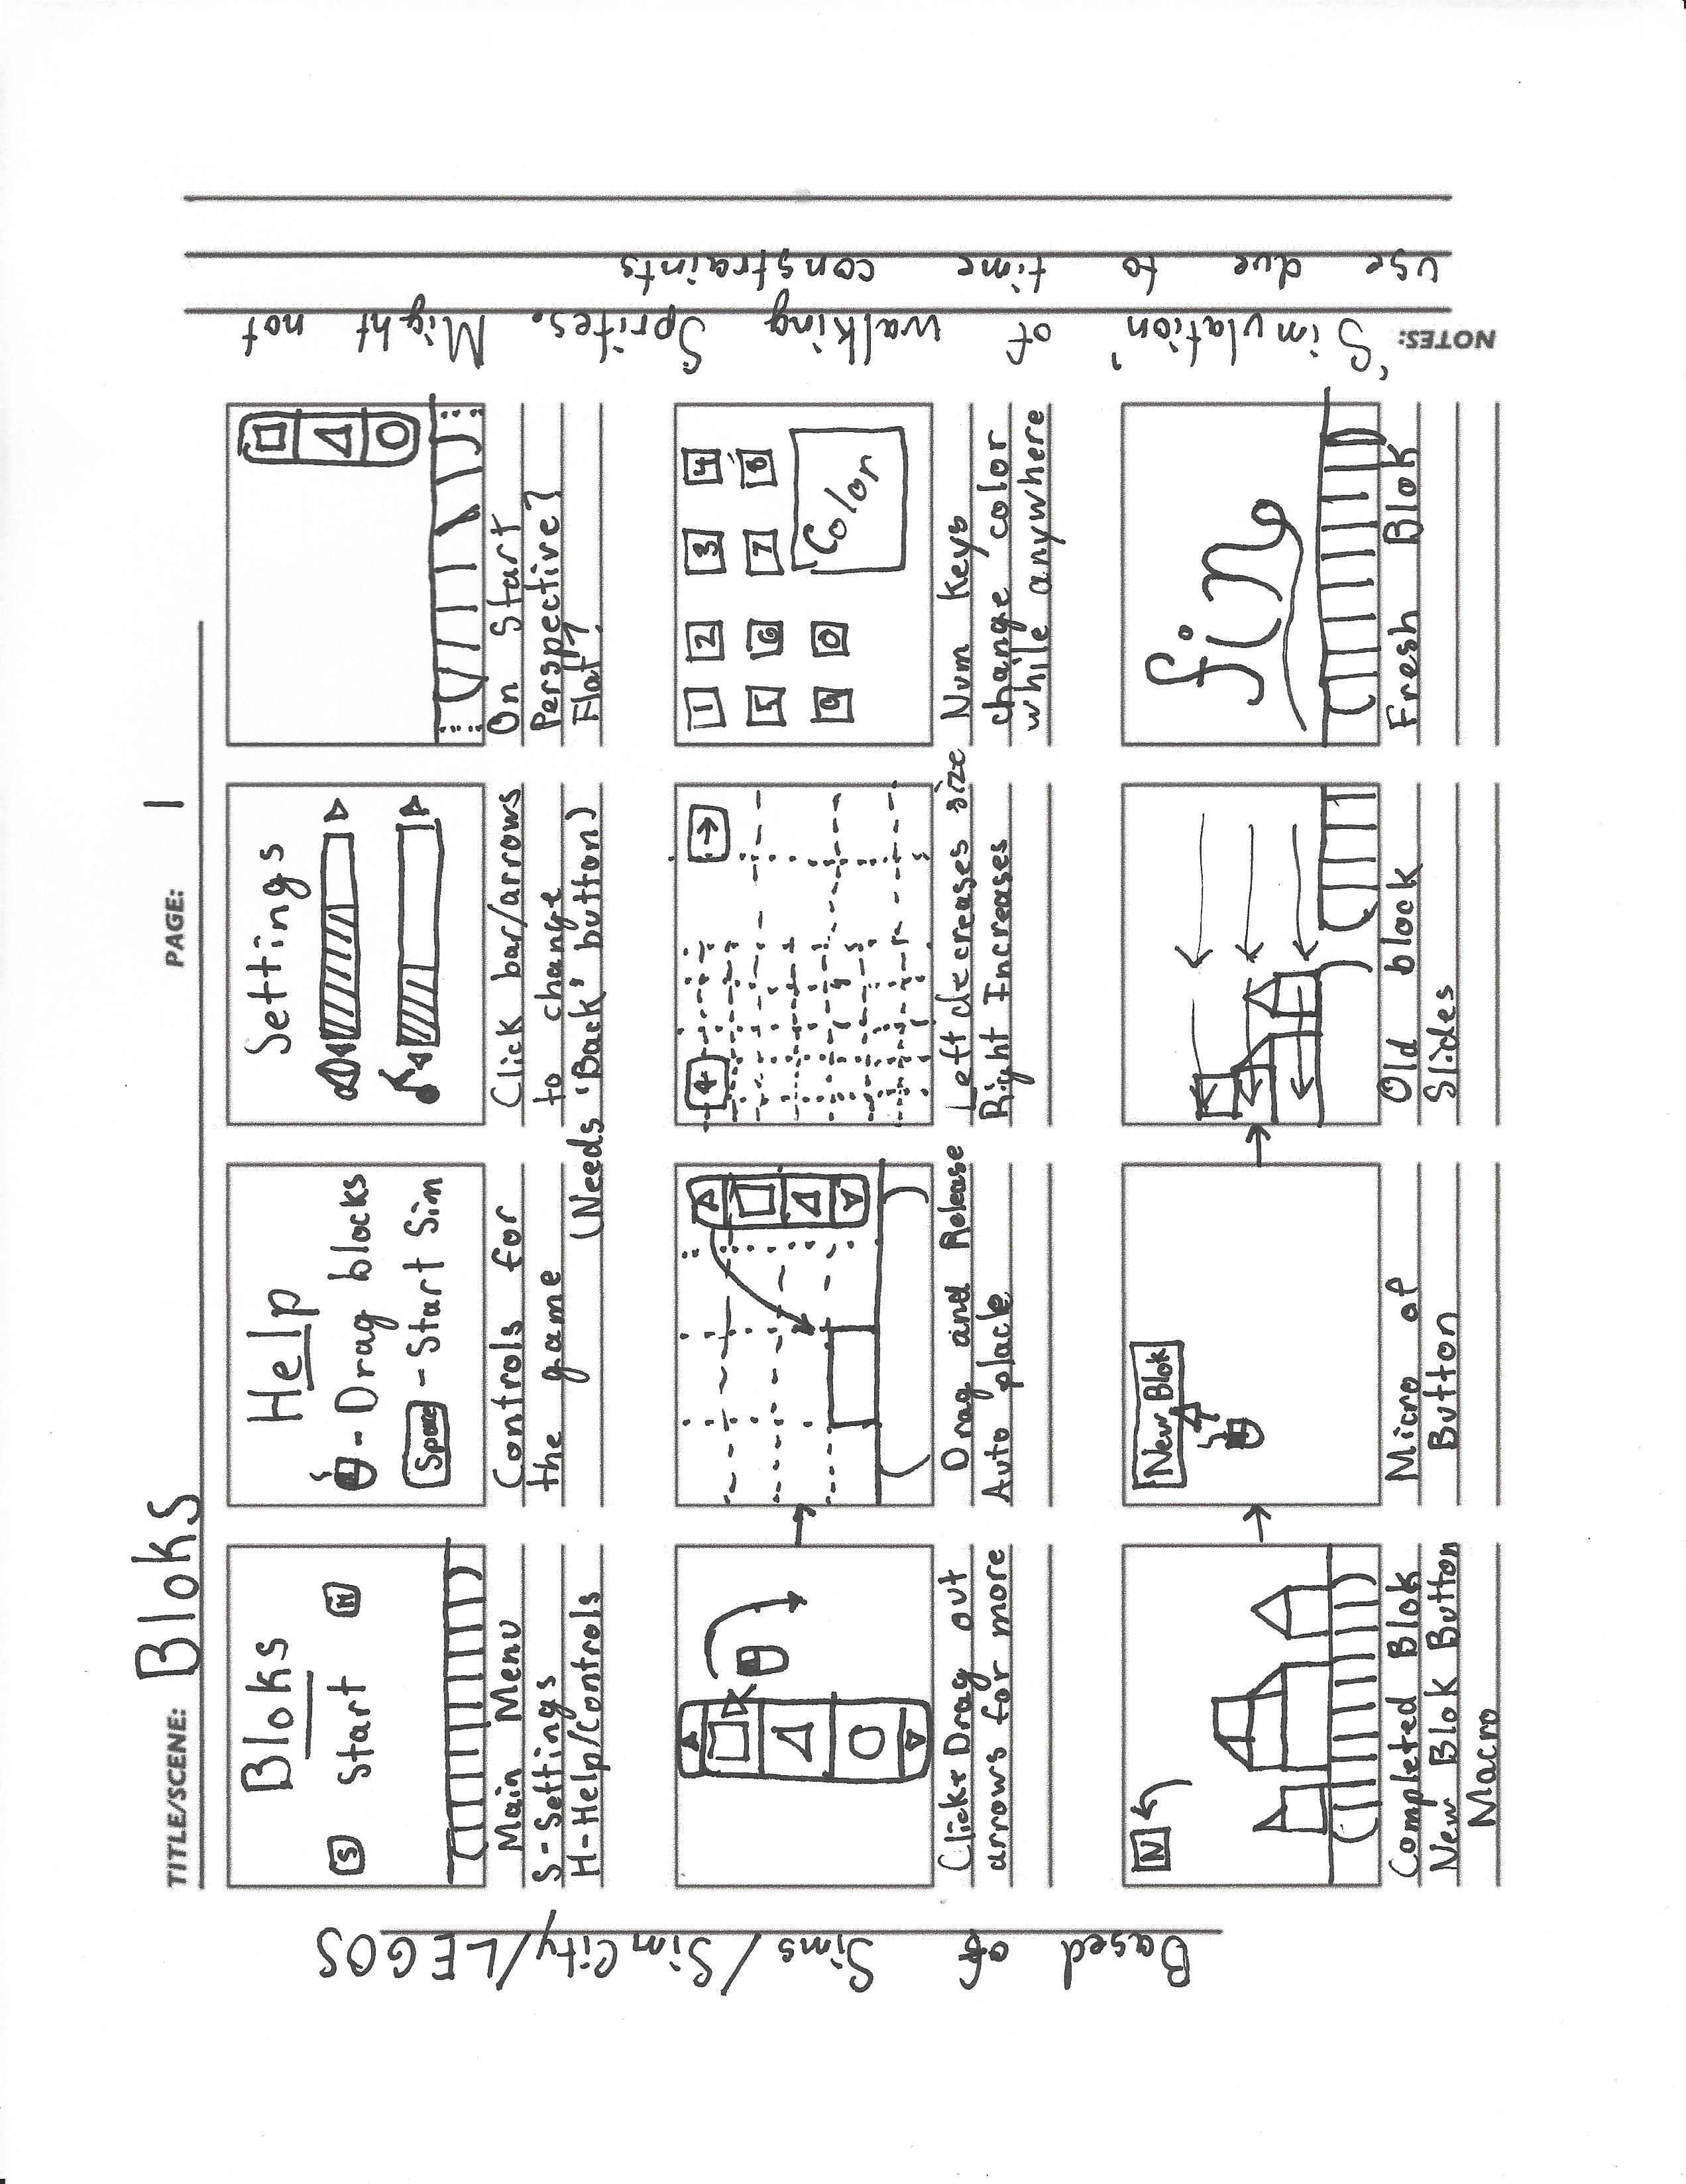 TITLE/SCENE: Bloks
PAGE: 1
Bloks
S
Start
H
Main Menu
S-Settings
H-Help/Controls
Help
- Drag blocks
Space - Start Sim
Controls for
the game
Settings
Click bar/arrows
to change
(Needs 'Back' button)
On Start
Perspective?
Flat?
Click & Drag out
arrows for more
Drag and Release
Auto place
Left decreases size
Right Increases
1 2 3 4
5 6 7 8
9 0
Color
Num Keys
change color
while anywhere
N
Completed Blok
New Blok Button
Macro
New Blok
Micro of
Button
Old block
Slides
fin
Fresh Blok
NOTES:
'Simulation' of walking Sprites. Might not
use due to time constraints
Based of Sims/SimCity/LEGOS